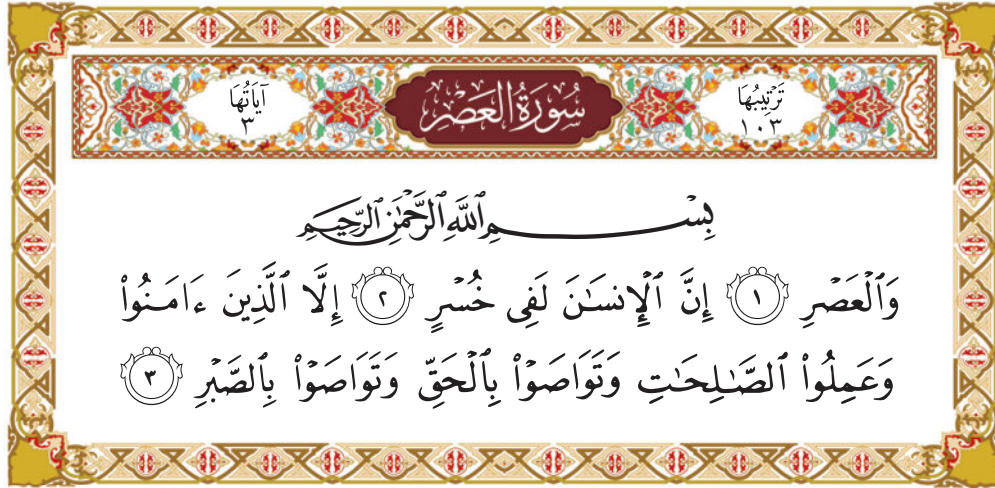 تَرْتِيبُهَا ١٠٣
سُورَةُ الْعَصْرِ
آيَاتُهَا ٣
بِسْمِ ٱللَّهِ ٱلرَّحْمَٰنِ ٱلرَّحِيمِ
وَٱلْعَصْرِ ١ إِنَّ ٱلْإِنسَٰنَ لَفِى خُسْرٍ ٢ إِلَّا ٱلَّذِينَ ءَامَنُوا۟
وَعَمِلُوا۟ ٱلصَّٰلِحَٰتِ وَتَوَاصَوْا۟ بِٱلْحَقِّ وَتَوَاصَوْا۟ بِٱلصَّبْرِ ٣